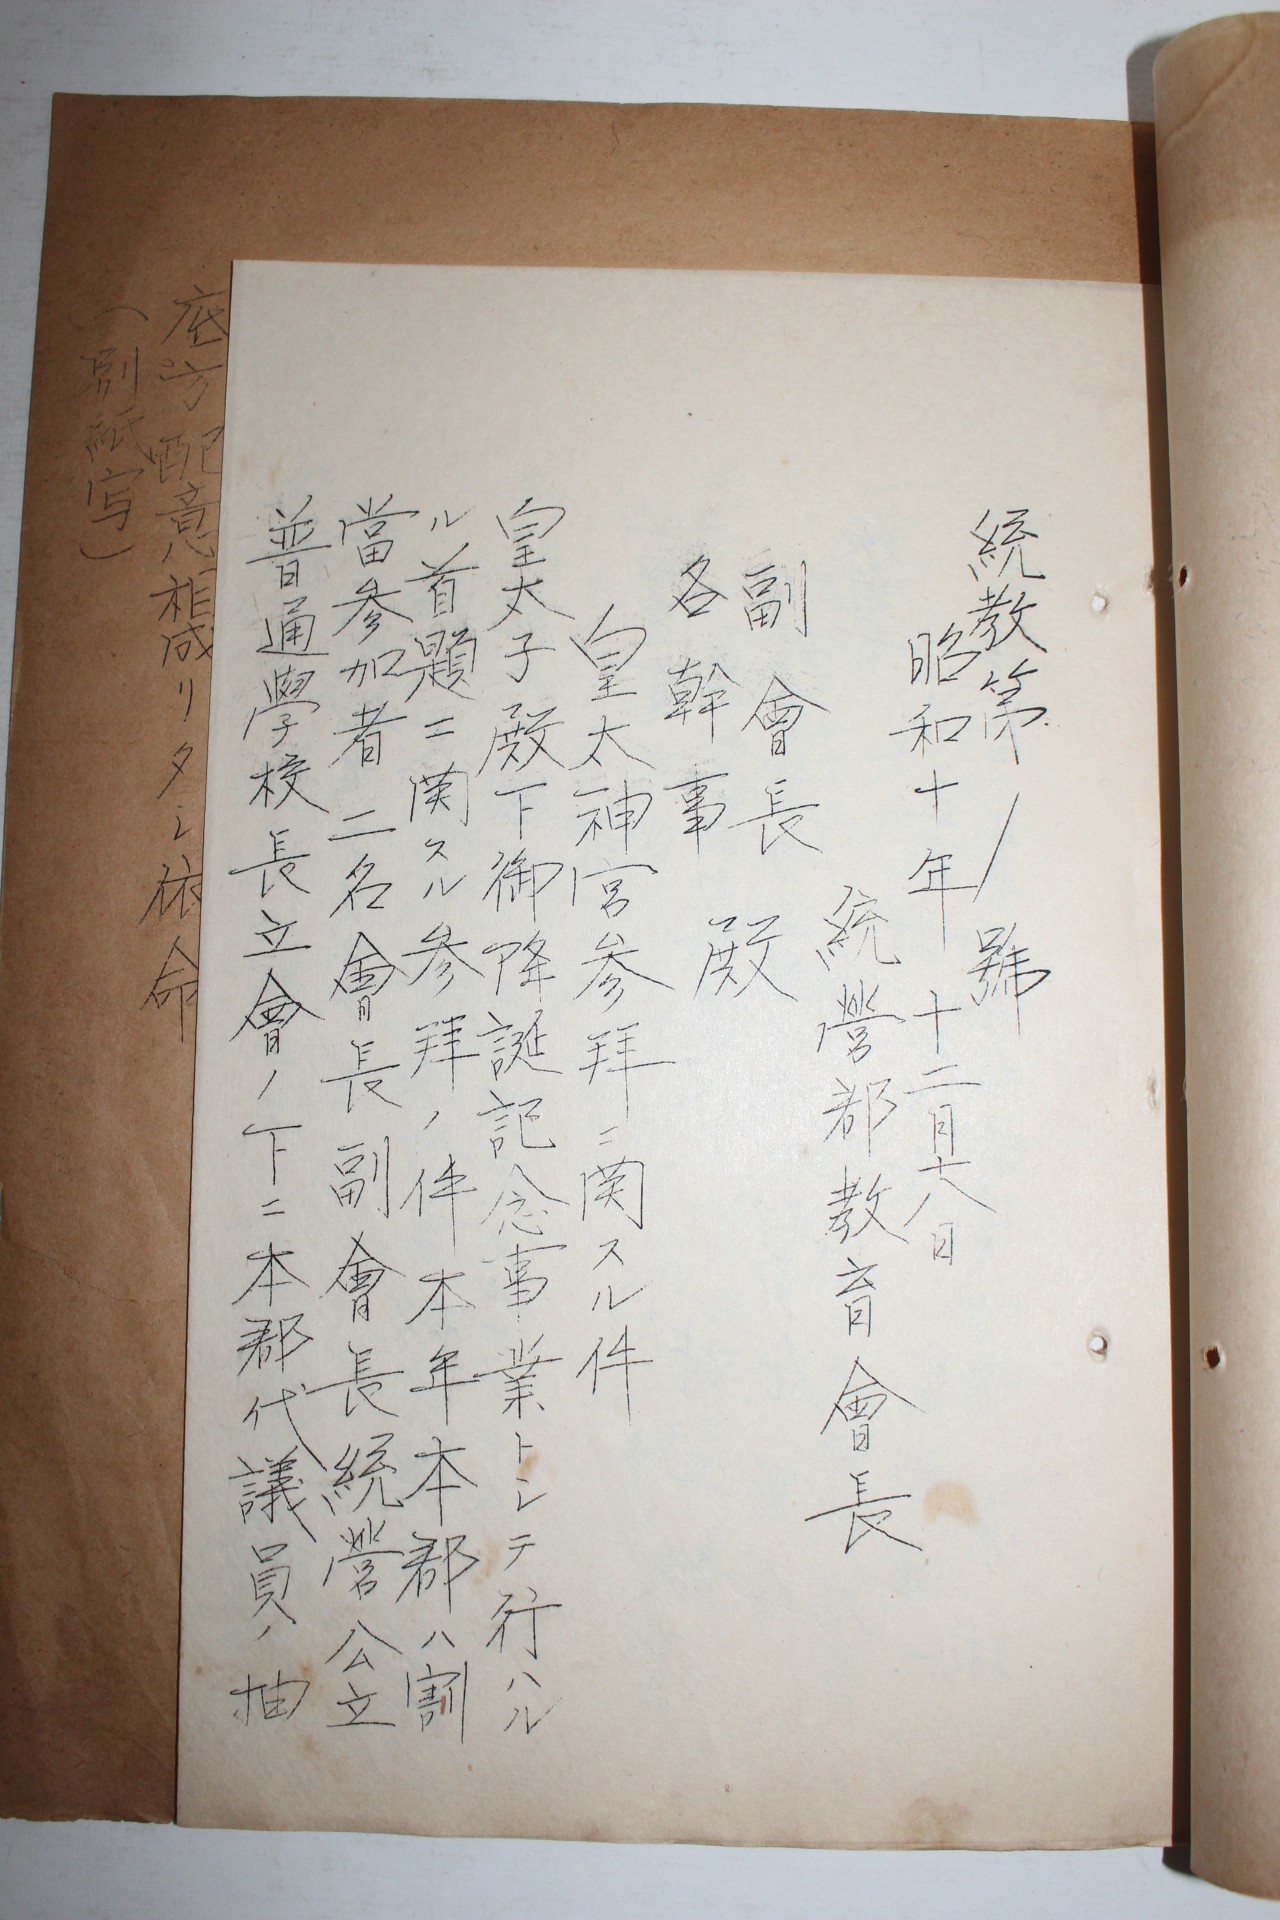 統教第 / 號
昭和十年十二月十八日
統營郡教育會長
副會長
各幹事 殿
皇太神宮参拜ニ関スル件
皇太子殿下御降誕記念事業トシテ行ハル
ル首題ニ関スル参拜ノ件本年本郡ハ割
當参加者二名會長副會長統營公立
普通學校長立會ノ下ニ本郡代議員ノ抽
底方配意相成リタシ依命
(別紙写)